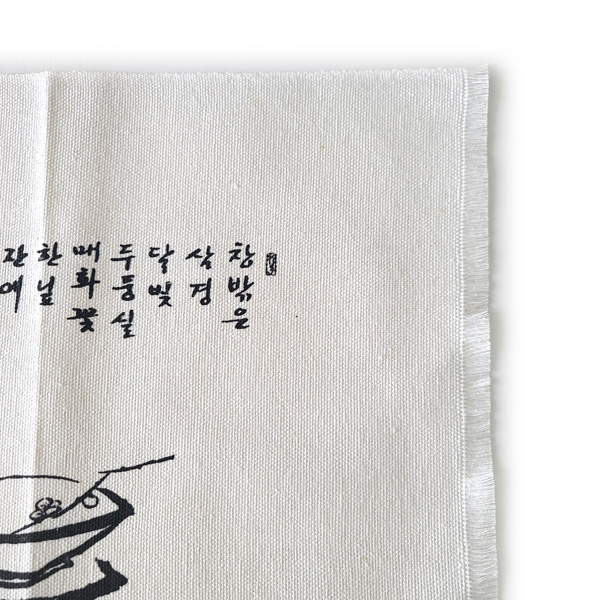 창밖은
삼경
달빛
두둥실
매화꽃
한 닢
잔에